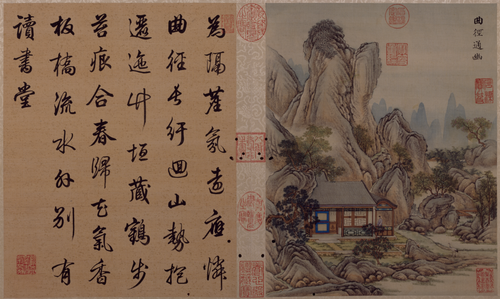 為隔蓬氣遠應憐
曲徑長紆迴山勢抱
邐迤竹垣藏鶴步
苔痕合春歸花氣香
板橋流水外別有
讀書堂
曲徑通幽